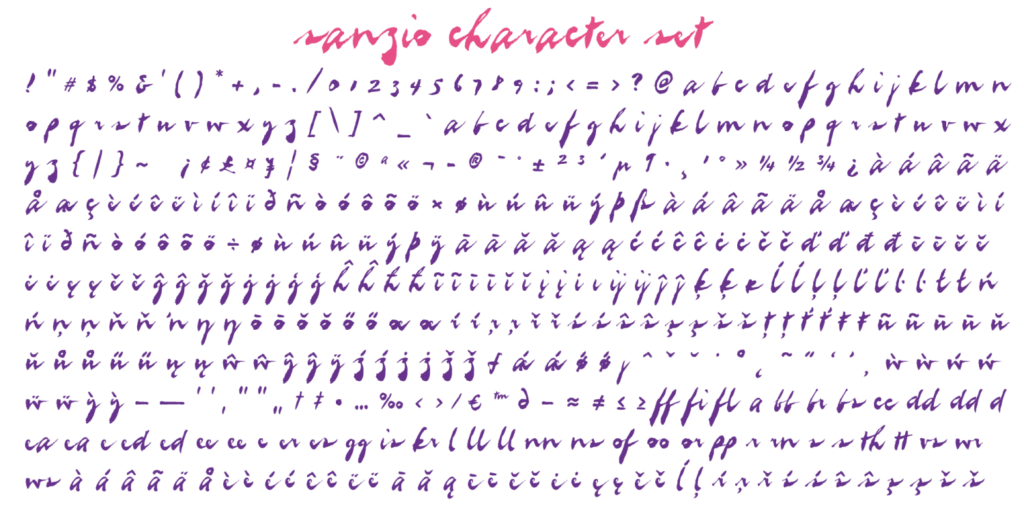 sanzio character set
! " # $ % & ' ( ) * + , - . / 0 1 2 3 4 5 6 7 8 9 : ; < = > ? @ a b c d e f g h i j k l m n
o p q r s t u v w x y z [ \ ] ^ _ ` a b c d e f g h i j k l m n o p q r s t u v w x
y z { | } ~ ¡ ¢ £ ¤ ¥ ¦ § ¨ © ª « ¬ - ® ¯ · ± ² ³ ´ µ ¶ · ¸ ¹ º » ¼ ½ ¾ ¿ à á â ã ä
å æ ç è é ê ë ì í î ï ð ñ ò ó ô õ ö × ø ù ú û ü ý þ ß à á â ã ä å æ ç è é ê ë ì í
î ï ð ñ ò ó ô õ ö ÷ ø ù ú û ü ý þ ÿ ā ā ă ă ą ą ć ć ĉ ĉ ċ ċ č č ď ď đ đ ē ē ĕ ĕ
ė ė ę ę ě ě ĝ ĝ ğ ğ ġ ġ ģ ģ ĥ ĥ ħ ħ ĩ ĩ ī ī ĭ ĭ į į i ı ĳ ĳ ĵ ĵ ķ ķ ĸ ĺ ĺ ļ ļ ľ ľ ŀ ŀ ł ł ń
ń ņ ņ ň ň ŉ ŋ ŋ ō ō ŏ ŏ ő ő œ œ ŕ ŕ ŗ ŗ ř ř ś ś ŝ ŝ ş ş š š ţ ţ ť ť ŧ ŧ ũ ũ ū ū ŭ
ŭ ů ů ű ű ų ų ŵ ŵ ŷ ŷ ÿ ź ź ż ż ž ž ƒ ǽ ǽ ǿ ǿ ȷ ˆ ˇ ˘ ˙ ˚ ˛ ˜ ˝ ‘ ’ ẁ ẁ ẃ ẃ
ẅ ẅ ỳ ỳ – — ‘ ’ ‚ “ ” „ † ‡ • … ‰ ‹ › ⁄ € ™ ∂ − ≈ ≠ ≤ ≥ ff fi fl a bb br bs cc dd dd d
ea ea e ed ed ee ee e er er es gg is kr l ll ll nn ns of oo or pp r rn s s th tt vs wr
ws à á â ã ä å è è é é ê ê ë ë ā ă ą ē ē ĕ ĕ ė ė ę ę ě ě ĺ ļ ŕ ŗ ř ś ś ŝ ŝ ş ş š š